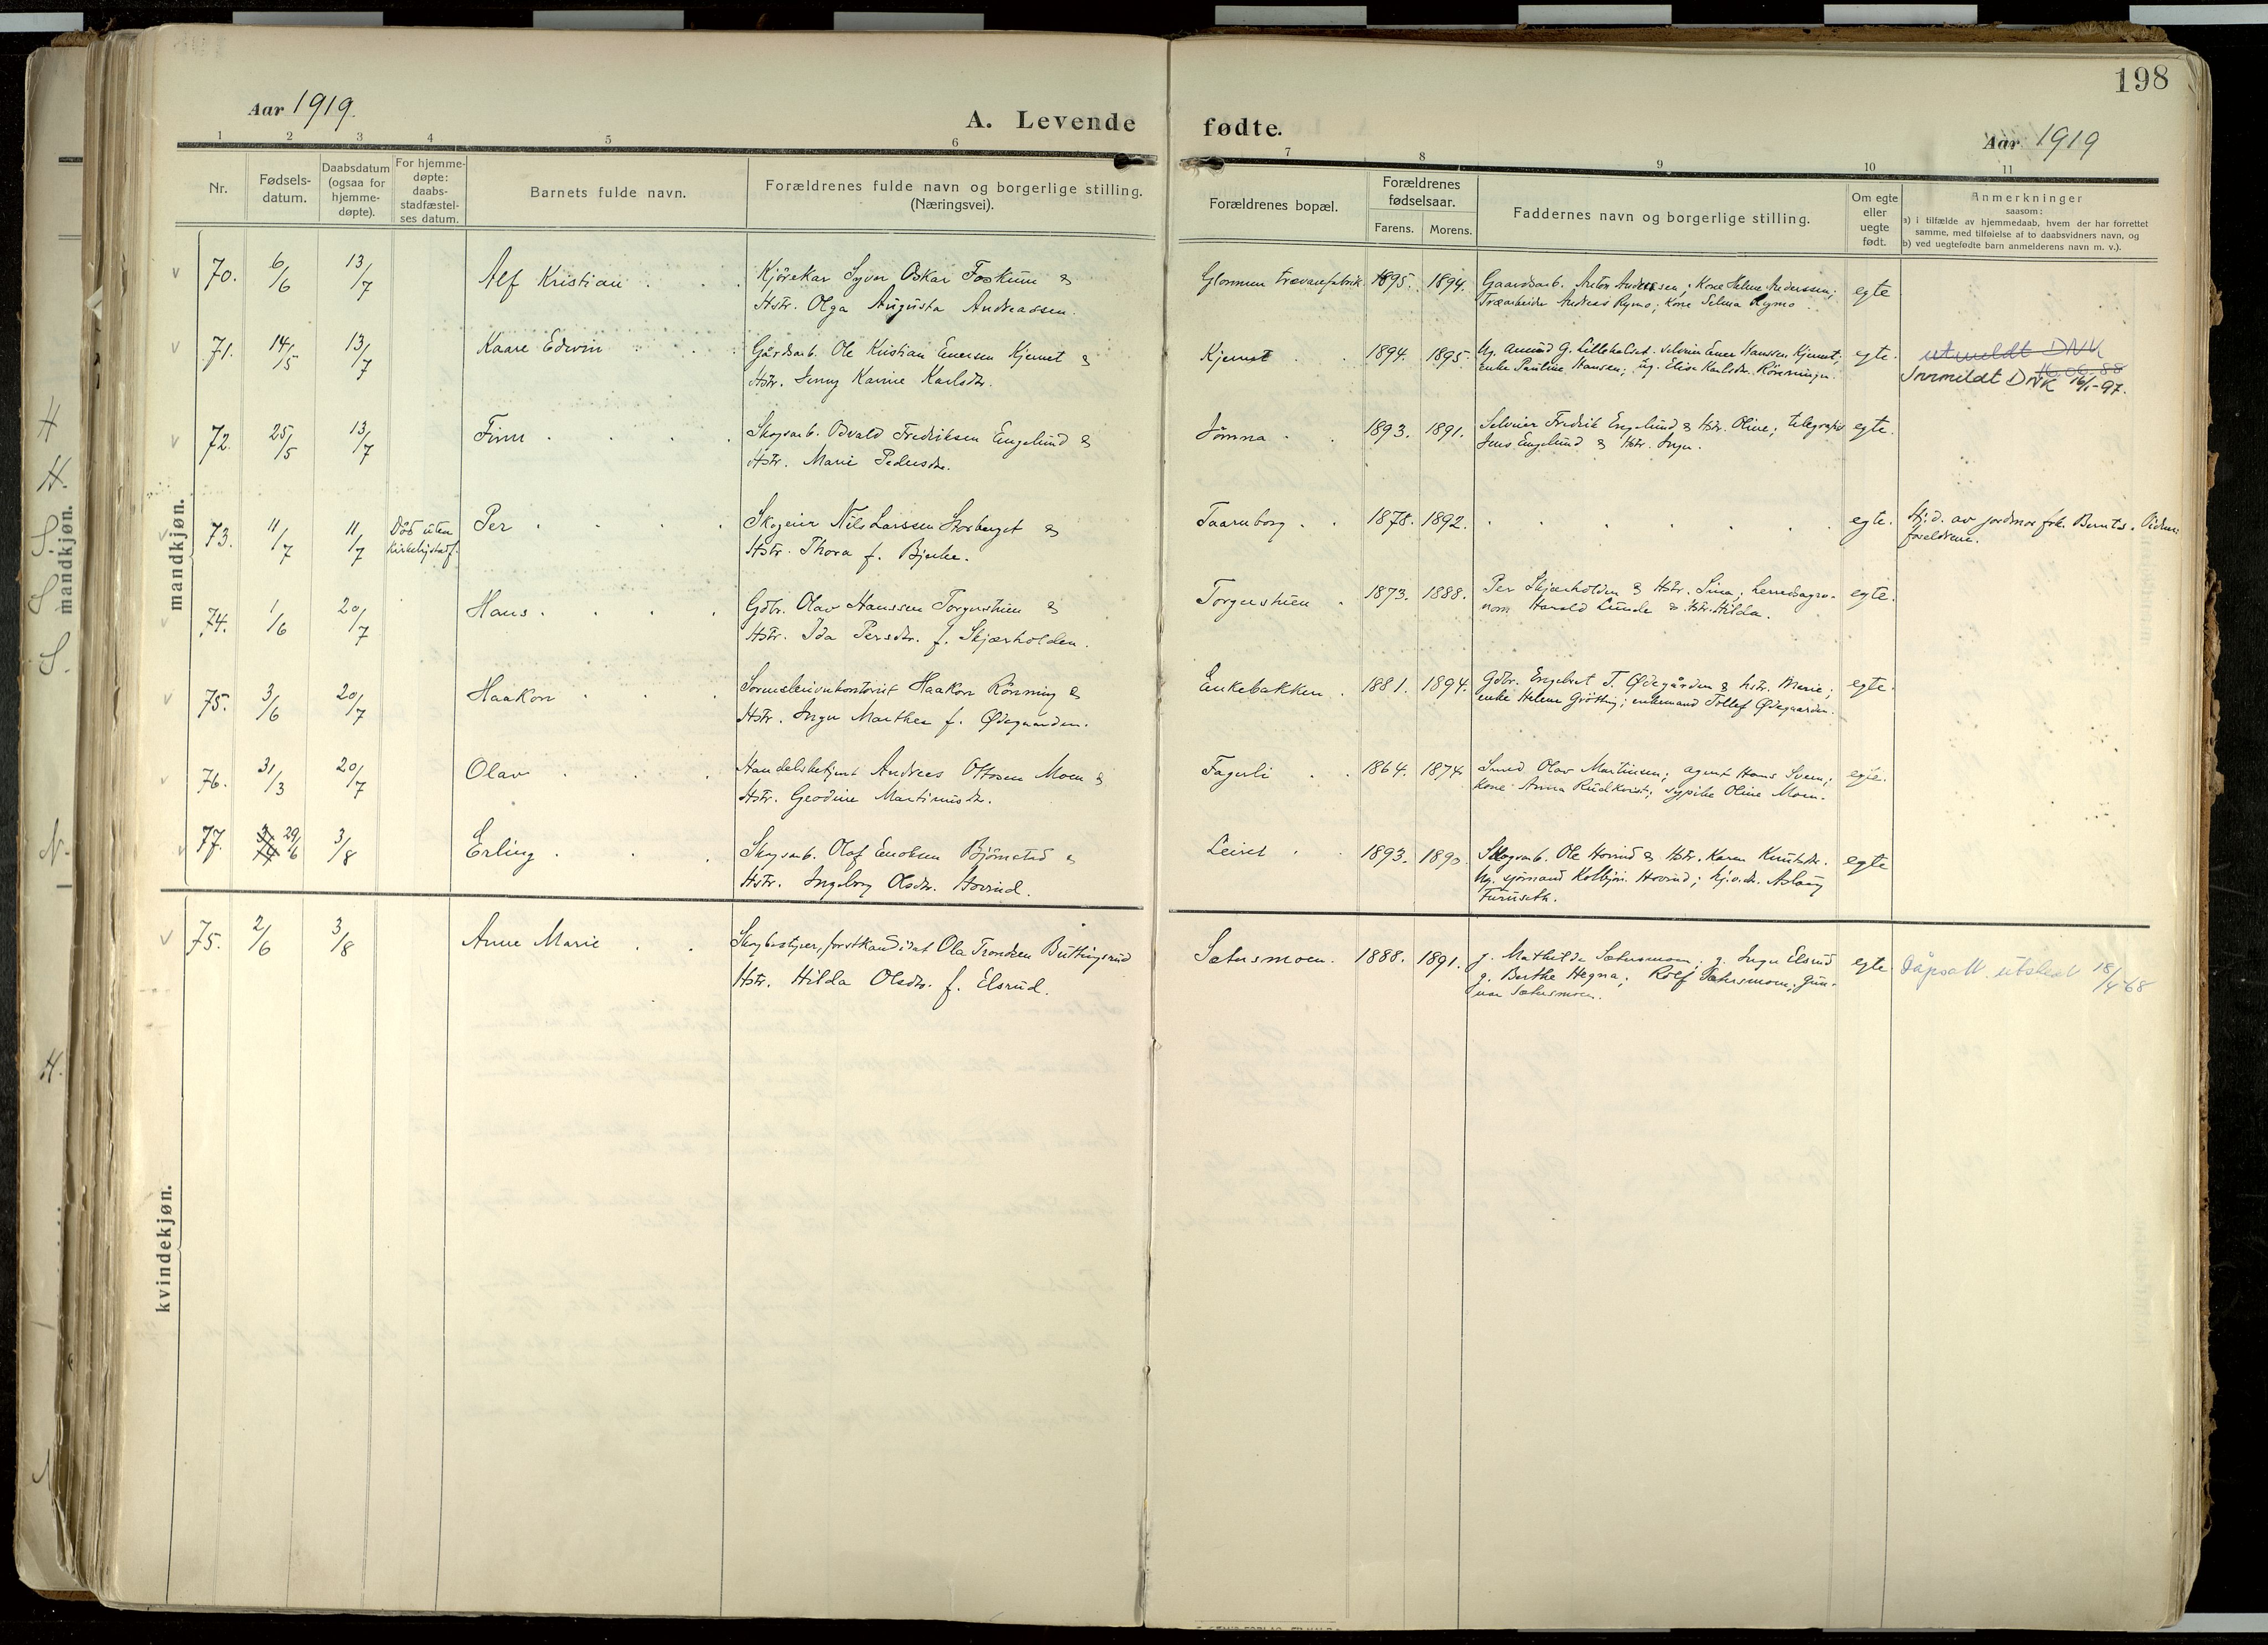 198
Aar 1919.
A. Levende fødte.
Aar 1919
1 2 3 4 5 6 7 8 9 10 11
Nr.
Fødsels-
datum.
Daabsdatum
(ogsaa for
hjemme-
døpte).
For hjemme-
døpte:
daabs-
stadfæstel-
ses datum.
Barnets fulde navn.
Forældrenes fulde navn og borgerlige stilling.
(Næringsvei).
Forældrenes bopæl.
Forældrenes
fødselsaar.
Farens. Morens.
Faddernes navn og borgerlige stilling.
Om egte
eller
uegte
født.
Anmerkninger
saasom:
a) i tilfælde av hjemmedaab, hvem der har forrettet
samme, med tilføielse af to daabsvidners navn, og
b) ved uegtefødte barn anmelderens navn m. v.).
mandkjøn.
mandkjøn.
70. 6/6 13/7 Alf Kristian
Kjörekar Syver Oskar Foskum &
Hstr. Olga Augusta Andreassen.
Glommen trævarefabrik. 1895. 1894.
Gaardsarb. Anton Anderssen; Kone Helene Anderssen;
Træarbeider Andreas Rymo; Kone Selma Rymo
egte
71. 14/5 13/7 Kaare Edwin
Gårdsarb. Ole Kristian Enersen Kjernet &
Hstr. Jenny Karine Karlsdtr.
Kjernet 1894. 1895.
Ug. Amund G. Lilleholset. selveier Ener Hanssen Kjernet;
enke Pauline Hansen; ug. Elise Karlsdtr. Rönningen.
egte.
utmeldt DNK
16.06.88
Innmeldt DNK 16/1-97.
72. 25/5 13/7 Finn
Skogsarb. Odvald Fredriksen Engelund &
Hstr. Marie Pedersdtr.
Jömna 1893. 1891.
Selveier Fredrik Engelund & Hstr. Oline; telegrafist
Jens Engelund & Hstr. Inga.
egte.
73. 11/7 11/7
Död uten
Kirkelig stadf.
Per
Skogeier Nils Larssen Storberget &
Hstr. Thora f. Bjerke.
Taarnborg 1878. 1892.
egte.
Hj.d. av jordmor frk. Berntsen. Vidner:
foreldrene.
74. 1/6 20/7 Hans
Gdbr. Olav Hanssen Torgerstuen &
Hstr. Ida Persdtr. f. Skjærholden.
Torgerstuen 1873. 1888.
Per Skjærholden & Hstr. Sina; herredsagro-
nom Harald Lunde & Hstr. Hilda.
egte.
75. 3/6 20/7 Haakon
Sorenskriverkontorist Haakon Rönning &
Hstr. Inga Marthea f. Ødegaarden.
Enkebakken 1881. 1894.
Gdbr. Engebret T. Ødegården & hstr. Marie;
enke Helene Grötting; enkemand Tollef Ødegaarden.
egte.
76. 31/3 20/7 Olav
Handelsbetjent Andreas Ottosen Moen &
Hstr. Geodine Martinusdtr.
Fagerli 1864. 1874
Smed Olav Martinsen; agent Hans Sveen;
Kone Anna Rudkvist; sypike Oline Moen.
egte.
77. 29/6 3/8 Erling
Skogsarb. Olaf Enoksen Björnstad &
Hstr. Ingeborg Olsdtr. Hovind.
Leiret 1893. 1890.
Skogsarb. Ole Hovind & Hstr. Karen Knutsdtr.
Ug. sjömand Kolbjörn Hovind; hj.v.dt. Aslaug
Furuseth.
egte
kvindekjøn.
75. 2/6 3/8 Anne Marie
Skogbestyrer, forstkandidat Ola Trondsen Buttingsrud
Hstr. Hilda Olsdtr. f. Elsrud.
Sætersmoen. 1888. 1891.
g. Mathilde Sætersmoen; g. Inga Elsrud
g. Berthe Hegna; Rolf Sætersmoen; Gun-
nar Sætersmoen.
egte
Dåpsatt. utskrevet 18/4-68